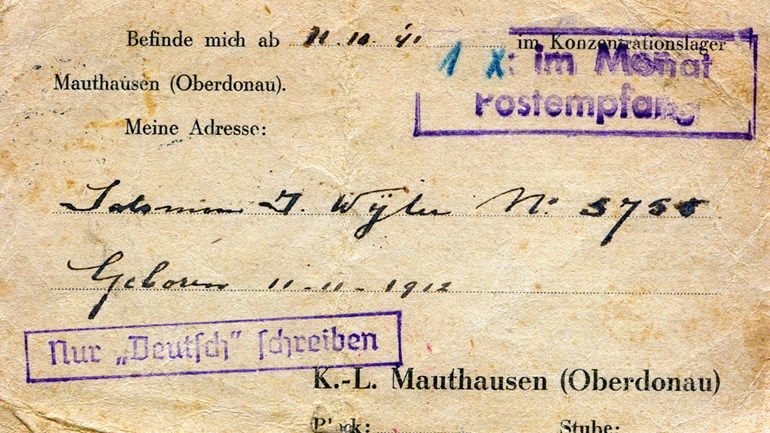 Befinde mich ab 21.10.41 im Konzentrationslager
Mauthausen (Oberdonau).
1 X im Monat
Postempfang
Meine Adresse:
Salomon I. Wijler No: 3755
Geboren 11-11-1912
Nur „Deutsch" schreiben
K.-L. Mauthausen (Oberdonau)
Block: Stube: